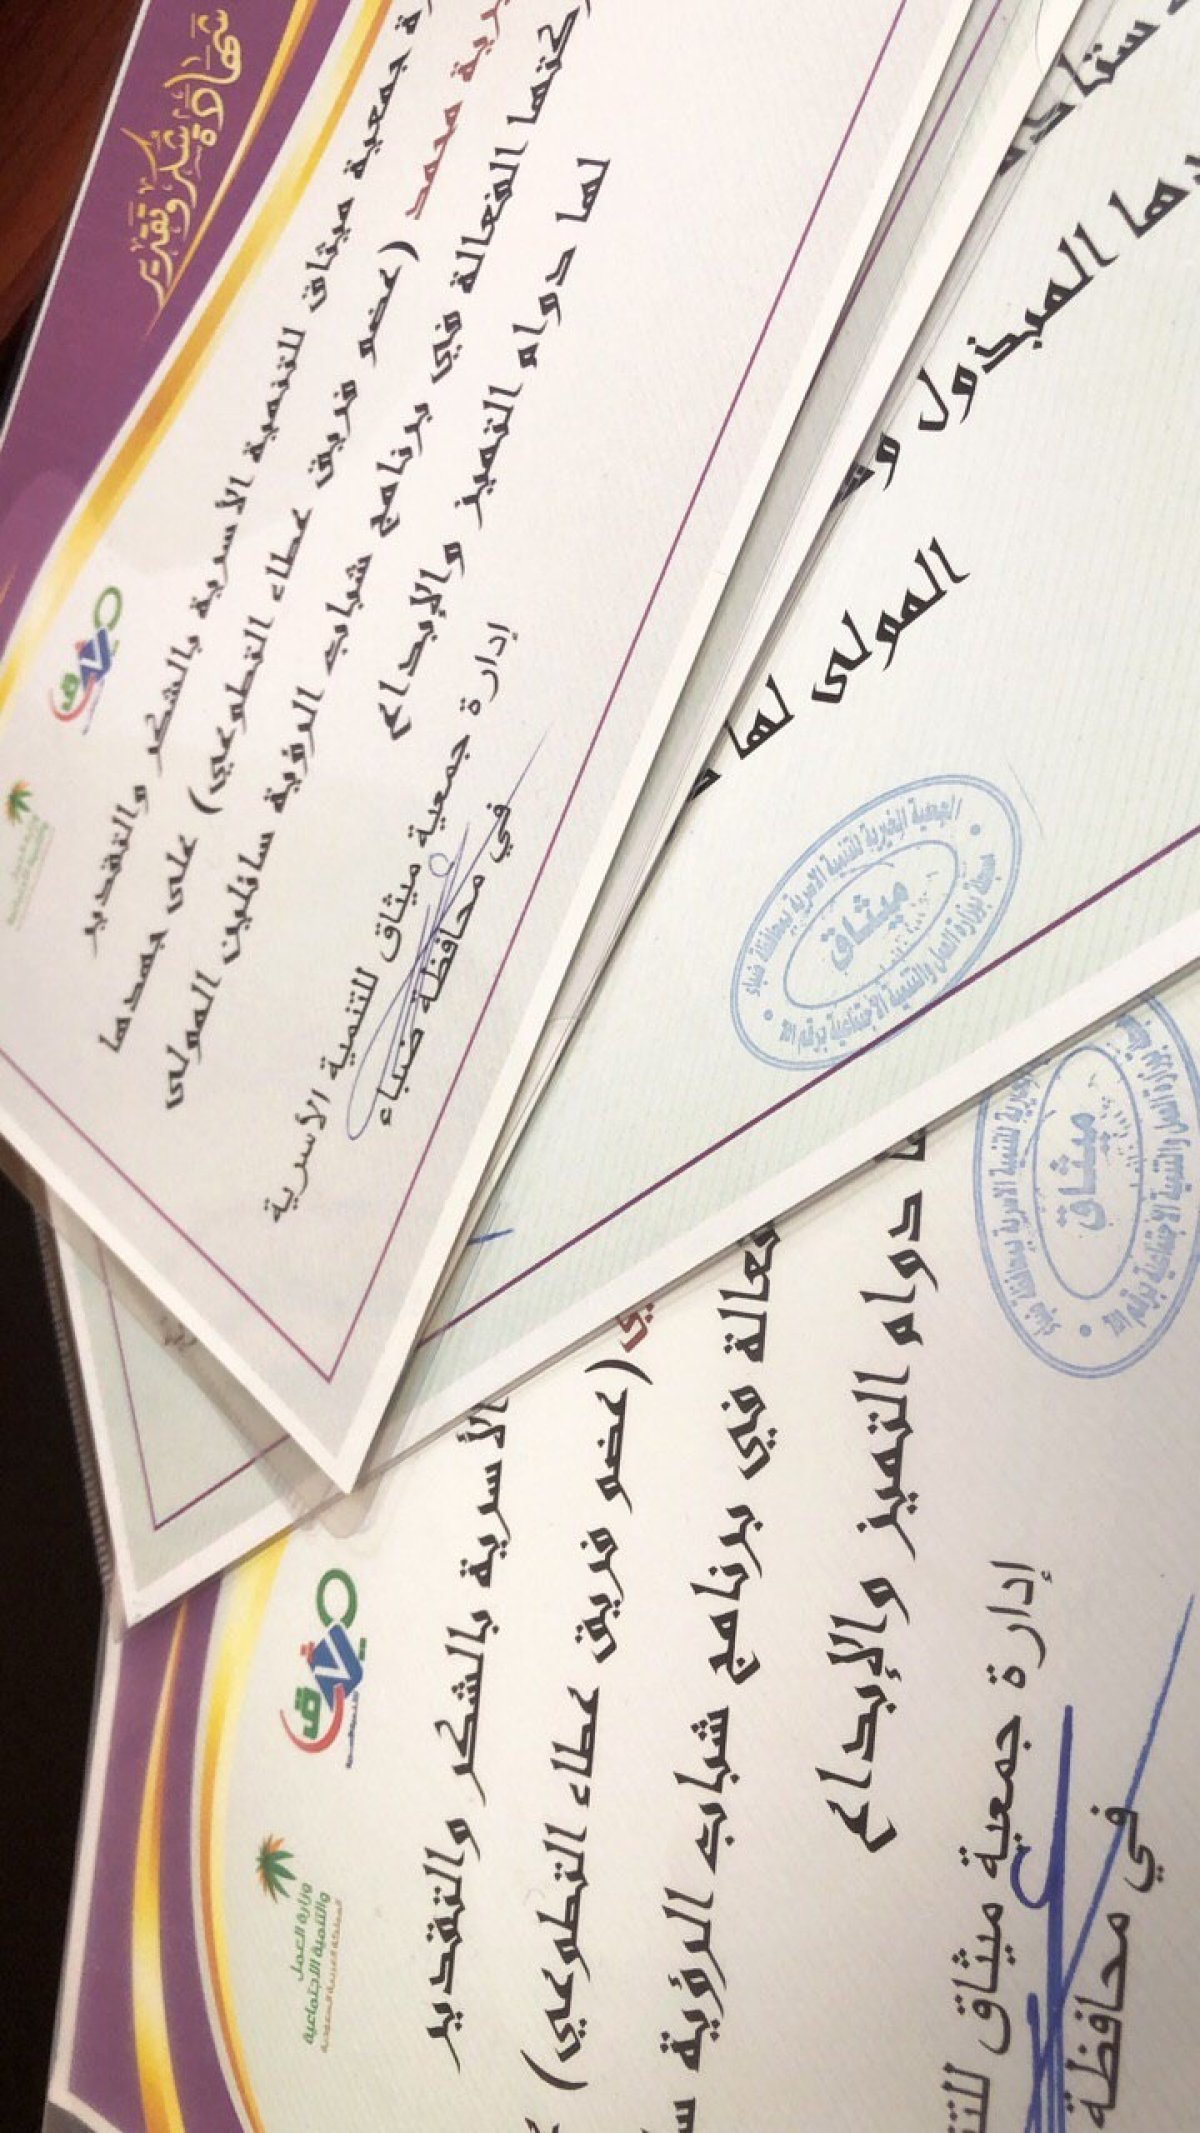 شهادة
شكر وتقدير
ميثاق
جمعية ميثاق للتنمية الأسرية بالشكر والتقدير
محمد (عضو فريق عطاء التطوعي) على جهدها
الفعالة في برنامج شباب الرؤية سائلين المولى
لها دوام التميز والإبداع
إدارة جمعية ميثاق للتنمية الأسرية
في محافظة ضباء
المبذول
المولى لها
الجمعية الخيرية للتنمية الاسرية بمحافظة ضباء
ميثاق
مسجلة بوزارة العمل والتنمية الاجتماعية برقم
ميثاق
وزارة العمل
والتنمية الاجتماعية
المملكة العربية السعودية
الأسرية بالشكر والتقدير
(عضو فريق عطاء التطوعي)
في برنامج شباب الرؤية
دوام التميز والإبداع
إدارة جمعية ميثاق
في محافظة
ميثاق
بوزارة العمل والتنمية الاجتماعية برقم